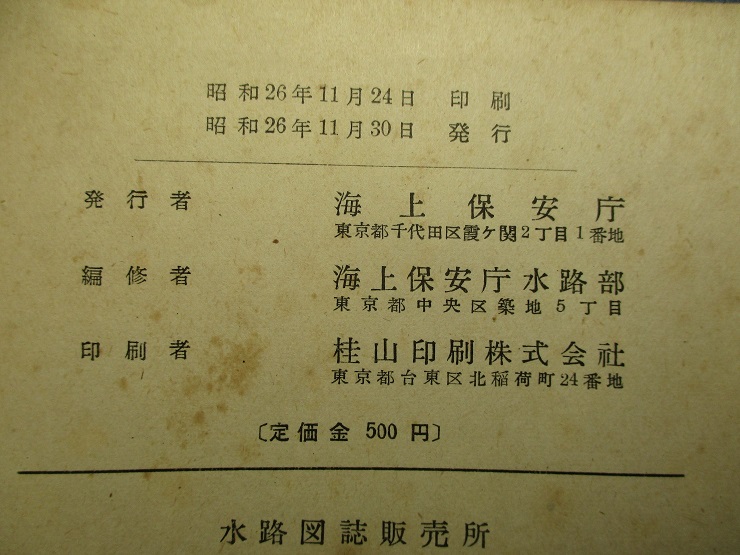 昭和26年11月24日 印刷
昭和26年11月30日 発行
発行者 海上保安庁
東京都千代田区霞ケ関2丁目1番地
編修者 海上保安庁水路部
東京都中央区築地5丁目
印刷者 桂山印刷株式会社
東京都台東区北稲荷町24番地
〔定価金 500 円〕
水路図誌販売所